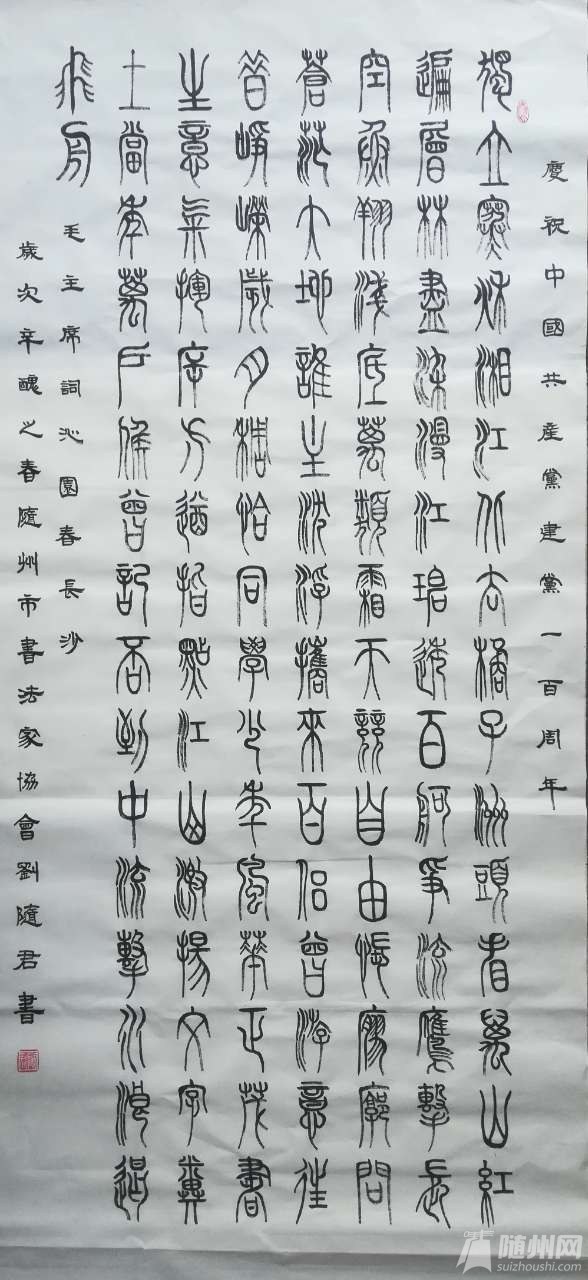 慶祝中國共產黨建黨一百周年
獨立寒秋湘江北去橘子洲頭看萬山紅
遍層林盡染漫江碧透百舸爭流鷹擊長
空魚翔淺底萬類霜天競自由悵寥廓問
蒼茫大地誰主沈浮攜來百侶曾游意往
昔崢嶸歲月稠恰同學少年風華正茂書
生意氣揮斥方遒指點江山激揚文字糞
土當年萬戶侯曾記否到中流擊水浪遏
飛舟
毛主席詞沁園春長沙
歲次辛醜之春隨州市書法家協會劉隨君書
随州网
suizhoushi.com